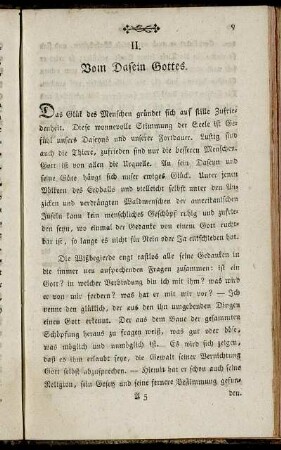 9
II.
Vom Dasein Gottes.
Das Glük des Menschen gründet sich auf stille Zufrie-
denheit. Diese wonnevolle Stimmung der Seele ist Ge-
fül unsers Daseyns und unsrer Fortdauer. Lustig sind
auch die Thiere, zufrieden sind nur die bessren Menschen.
Gott ist von allen die Urquelle. An sein Daseyn und
seine Güte hängt sich unser ewiges Glück. Unter jenen
Völkern des Erdballs und vielleicht selbst unter den
und verdrängten Waldmenschen der amerikanischen
Inseln kann kein menschliches Geschöpf ruhig und zufrie-
den seyn, wo einmal der Gedanke von einem Gott rucht-
bar ist, so lange es nicht für Nein oder Ja entschieden hat.
Die Wißbegierde engt rastlos alle seine Gedanken in
die immer neu ansprechenden Fragen zusammen: ist ein
Gott? in welcher Verbindung bin ich mit ihm? was wird
er von mir fordern? was hat er mit mir vor? — Ich
nenne den glüklich, der aus den ihn umgebenden Dingen
einen Gott erkennt. Der aus dem Baue der gesammten
Schöpfung heraus zu fragen weiß, was gut oder böse,
was möglich und unmöglich ist. Es wird sich zeigen,
daß es ihm erlaubt seye, die Gewalt seiner Vernichtung
Gott selbst abzusprechen. — Hiemit hat er schon auch seine
Religion, sein Gesetz und seine fernere Bestimmung gefun-
A 5
den.